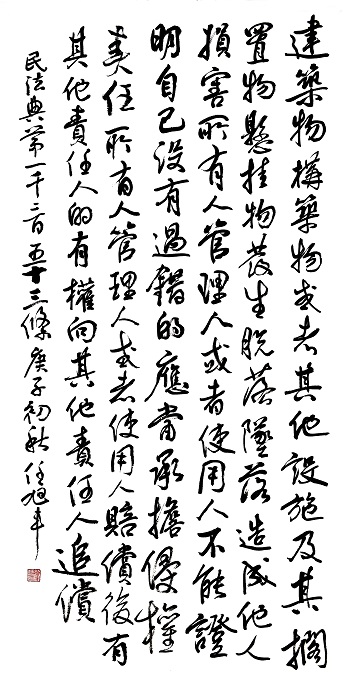 建築物構築物或者其他設施及其擱
置物懸挂物發生脱落墜落造成他人
損害所有人管理人或者使用人不能證
明自己没有過錯的應當承擔侵權
責任所有人管理人或者使用人賠償後有
其他責任人的有權向其他責任人追償
民法典第一千二百五十三條庚子初秋任旭